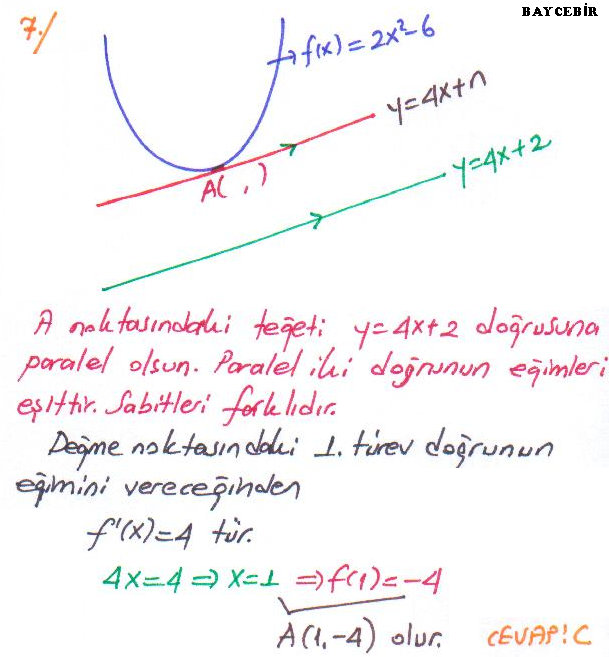 BAYCEBİR
7./
f(x)=2x²-6
y=4x+n
y=4x+2
A( , )
A noktasındaki teğeti y=4x+2 doğrusuna
paralel olsun. Paralel iki doğrunun eğimleri
eşittir. Sabitleri farklıdır.
Değme noktasındaki 1. türev doğrunun
eğimini vereceğinden
f'(x)=4 tür.
4x=4 ⇒ x=1 ⇒ f(1)=-4
A(1,-4) olur. CEVAP: C